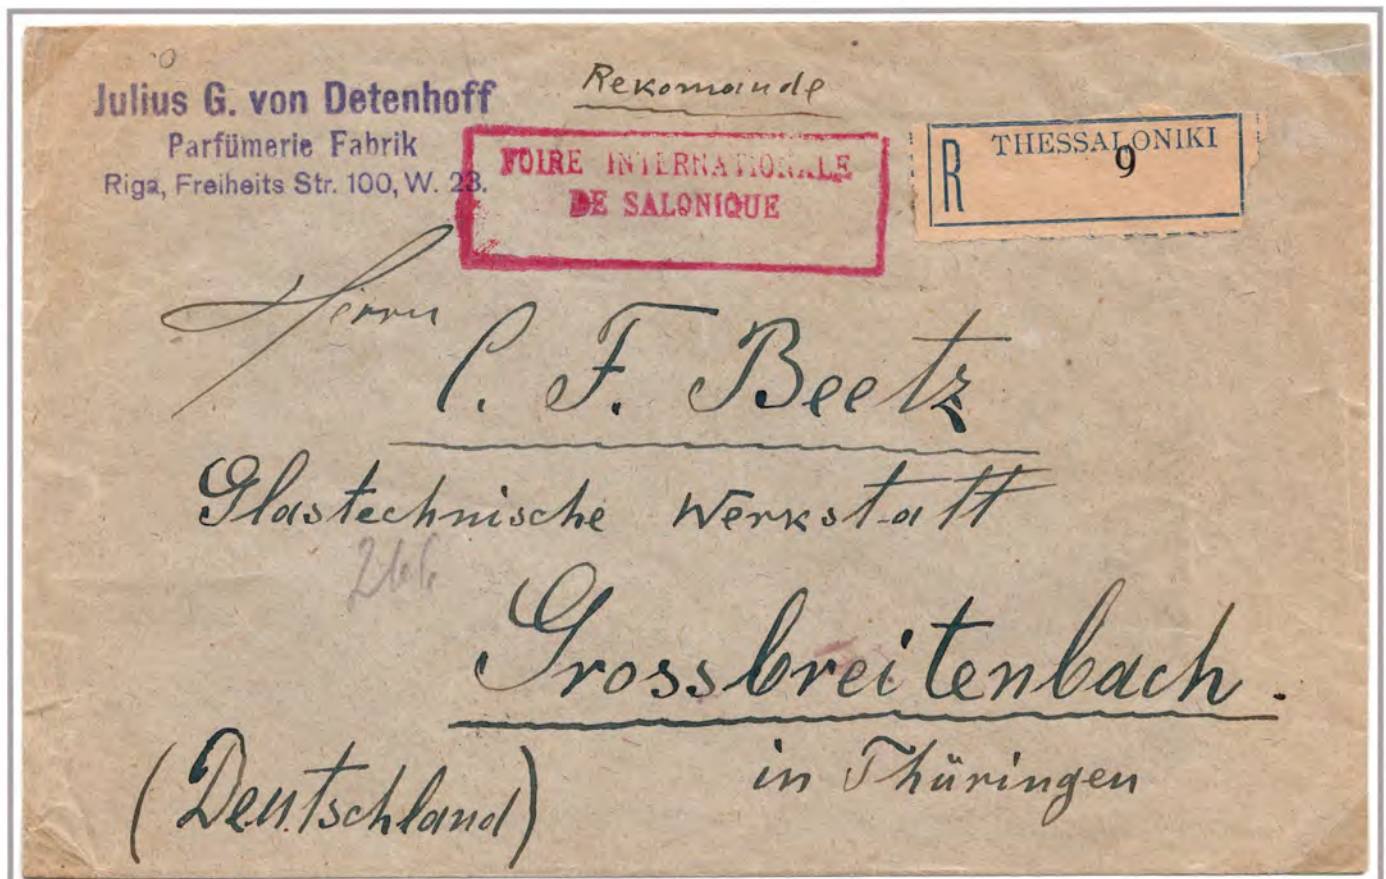 Julius G. von Detenhoff
Parfümerie Fabrik
Riga, Freiheits Str. 100, W. 23.
Rekomainde
FOIRE INTERNATIONALE
DE SALONIQUE
R THESSALONIKI
9
Herrn
C. F. Beetz
Glastechnische Werkstatt
Grossbreitenbach.
in Thüringen
(Deutschland)